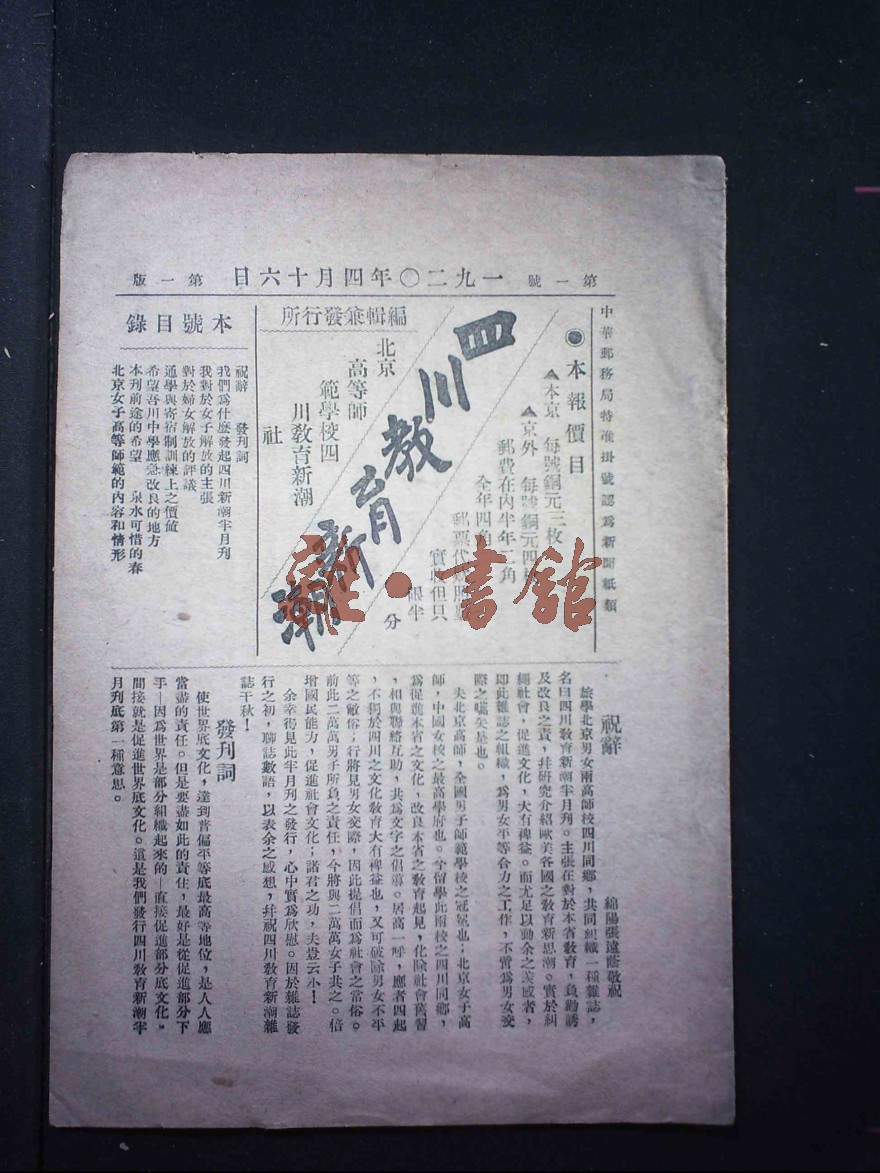 第一號
一九二〇年四月十六日
第一版
中華郵務局特准掛號認爲新聞紙類
◉本報價目
▲本京 每號銅元三枚
▲京外 每號銅元四枚
郵費在內半年二角
全年四角
郵票代
實收但只
限半
分
四川教育新潮
編輯兼發行所
北京
高等師
範學校四
川教育新潮
社
本號目錄
祝辭 發刊詞
我們爲什麼發起四川新潮半月刊
我對於女子解放的主張
對於婦女解放的評議
通學與寄宿制訓練上之價値
希望吾川中學應急改良的地方
本刊前途的希望 泉水可惜的春
北京女子高等師範的內容和情形
雜·書館
祝辭
綿陽張遠蔭敬祝
旅學北京男女兩高師校四川同鄉，共同組織一種雜誌，
名曰四川敎育新潮半月刊。主張在對於本省敎育，負勸誘
及改良之責，幷研究介紹歐美各國之敎育新思潮。實於糾
繩社會，促進文化，大有裨益。而尤足以動余之羨感者，
卽此雜誌之組織，爲男女平等合力之工作，不啻爲男女交
際之嚆矢是也。
夫北京高師，全國男子師範學校之冠冕也；北京女子高
師，中國女校之最高學府也。今留學此兩校之四川同鄉，
爲促進本省之文化，改良本省之敎育起見，化除社會舊習
，相與聯絡互助，共爲文字之倡導。居高一呼，應者四起
，不獨於四川之文化敎育大有裨益也，又可破除男女不平
等之敝俗；行將見男女交際，因此提倡而爲社會之當俗。
前此二萬萬男子所負之責任，今將與二萬萬女子共之。倍
增國民能力，促進社會文化；諸君之功，夫豈云小！
余幸得見此半月刊之發行，心中實爲欣慰。因於雜誌發
行之初，聊誌數語，以表余之感想，幷祝四川敎育新潮雜
誌千秋！
發刊詞
使世界底文化，達到普徧平等底最高等地位，是人人應
當盡的責任。但是要盡如此的責任，最好是從促進部分下
手—因爲世界是部分組織起來的—直接促進部分底文化，
間接就是促進世界底文化。這是我們發行四川敎育新潮半
月刊底第一種意思。